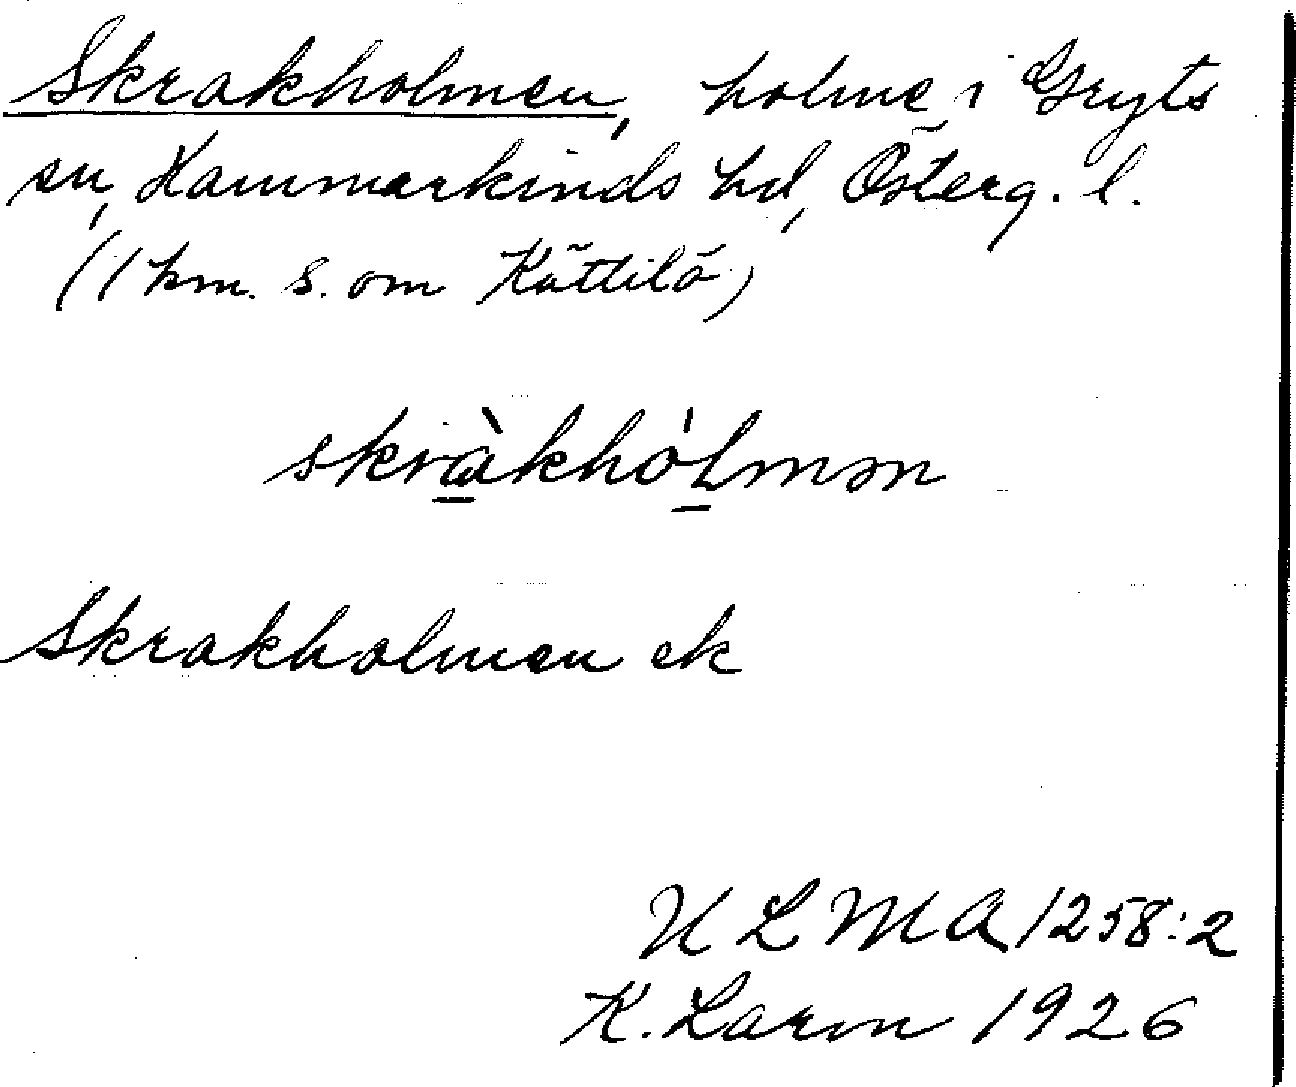 Skrakholmen, holme i Gryts
sn, Hammarkinds hd, Österg. l.
(1 km. S. om Kättilö)
skràkhólmən
Skrakholmen ek
ULMA 1258:2
K. Larm 1926